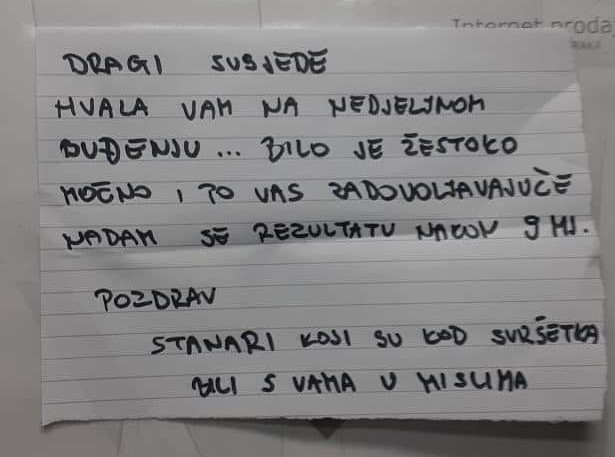 Internet proda
DRAGI SUSJEDE
HVALA VAM NA NEDJELJNOM
BUĐENJU... BILO JE ŽESTOKO
MOĆNO I PO VAS ZADOVOLJAVAJUĆE
NADAM SE REZULTATU NAKON 9 MJ.
POZDRAV
STANARI KOJI SU KOD SVRŠETKA
BILI S VAMA U MISLIMA